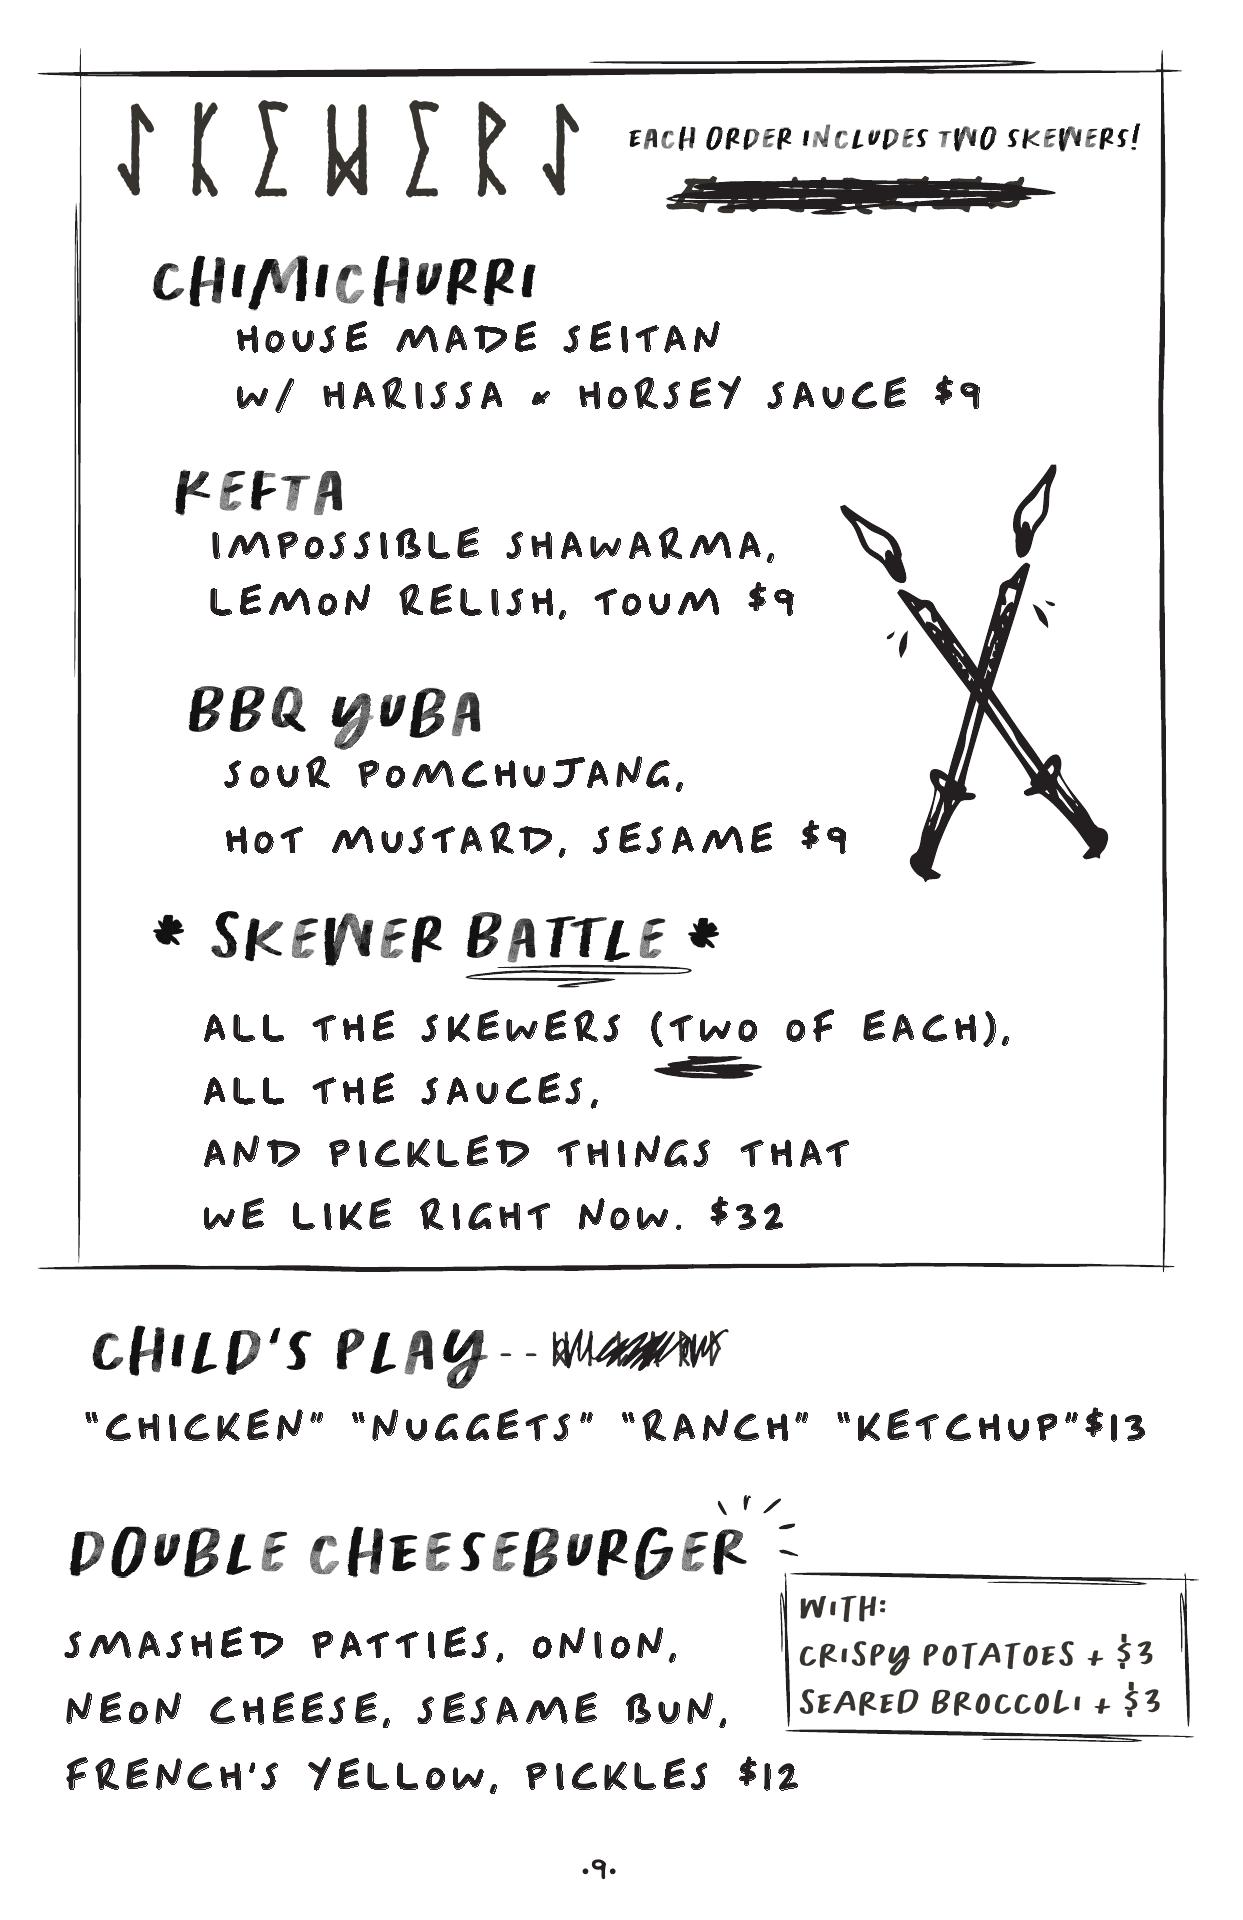 SKEWERS
EACH ORDER INCLUDES TWO SKEWERS!
CHIMICHURRI
HOUSE MADE SEITAN
W/ HARISSA & HORSEY SAUCE $9
KEFTA
IMPOSSIBLE SHAWARMA,
LEMON RELISH, TOUM $9
BBQ YUBA
SOUR POMCHUJANG,
HOT MUSTARD, SESAME $9
* SKEWER BATTLE *
ALL THE SKEWERS (TWO OF EACH),
ALL THE SAUCES,
AND PICKLED THINGS THAT
WE LIKE RIGHT NOW. $32
CHILD'S PLAY--
"CHICKEN" "NUGGETS" "RANCH" "KETCHUP"$13
DOUBLE CHEESEBURGER
SMASHED PATTIES, ONION,
NEON CHEESE, SESAME BUN,
FRENCH'S YELLOW, PICKLES $12
WITH:
CRISPY POTATOES + $3
SEARED BROCCOLI + $3
•9•